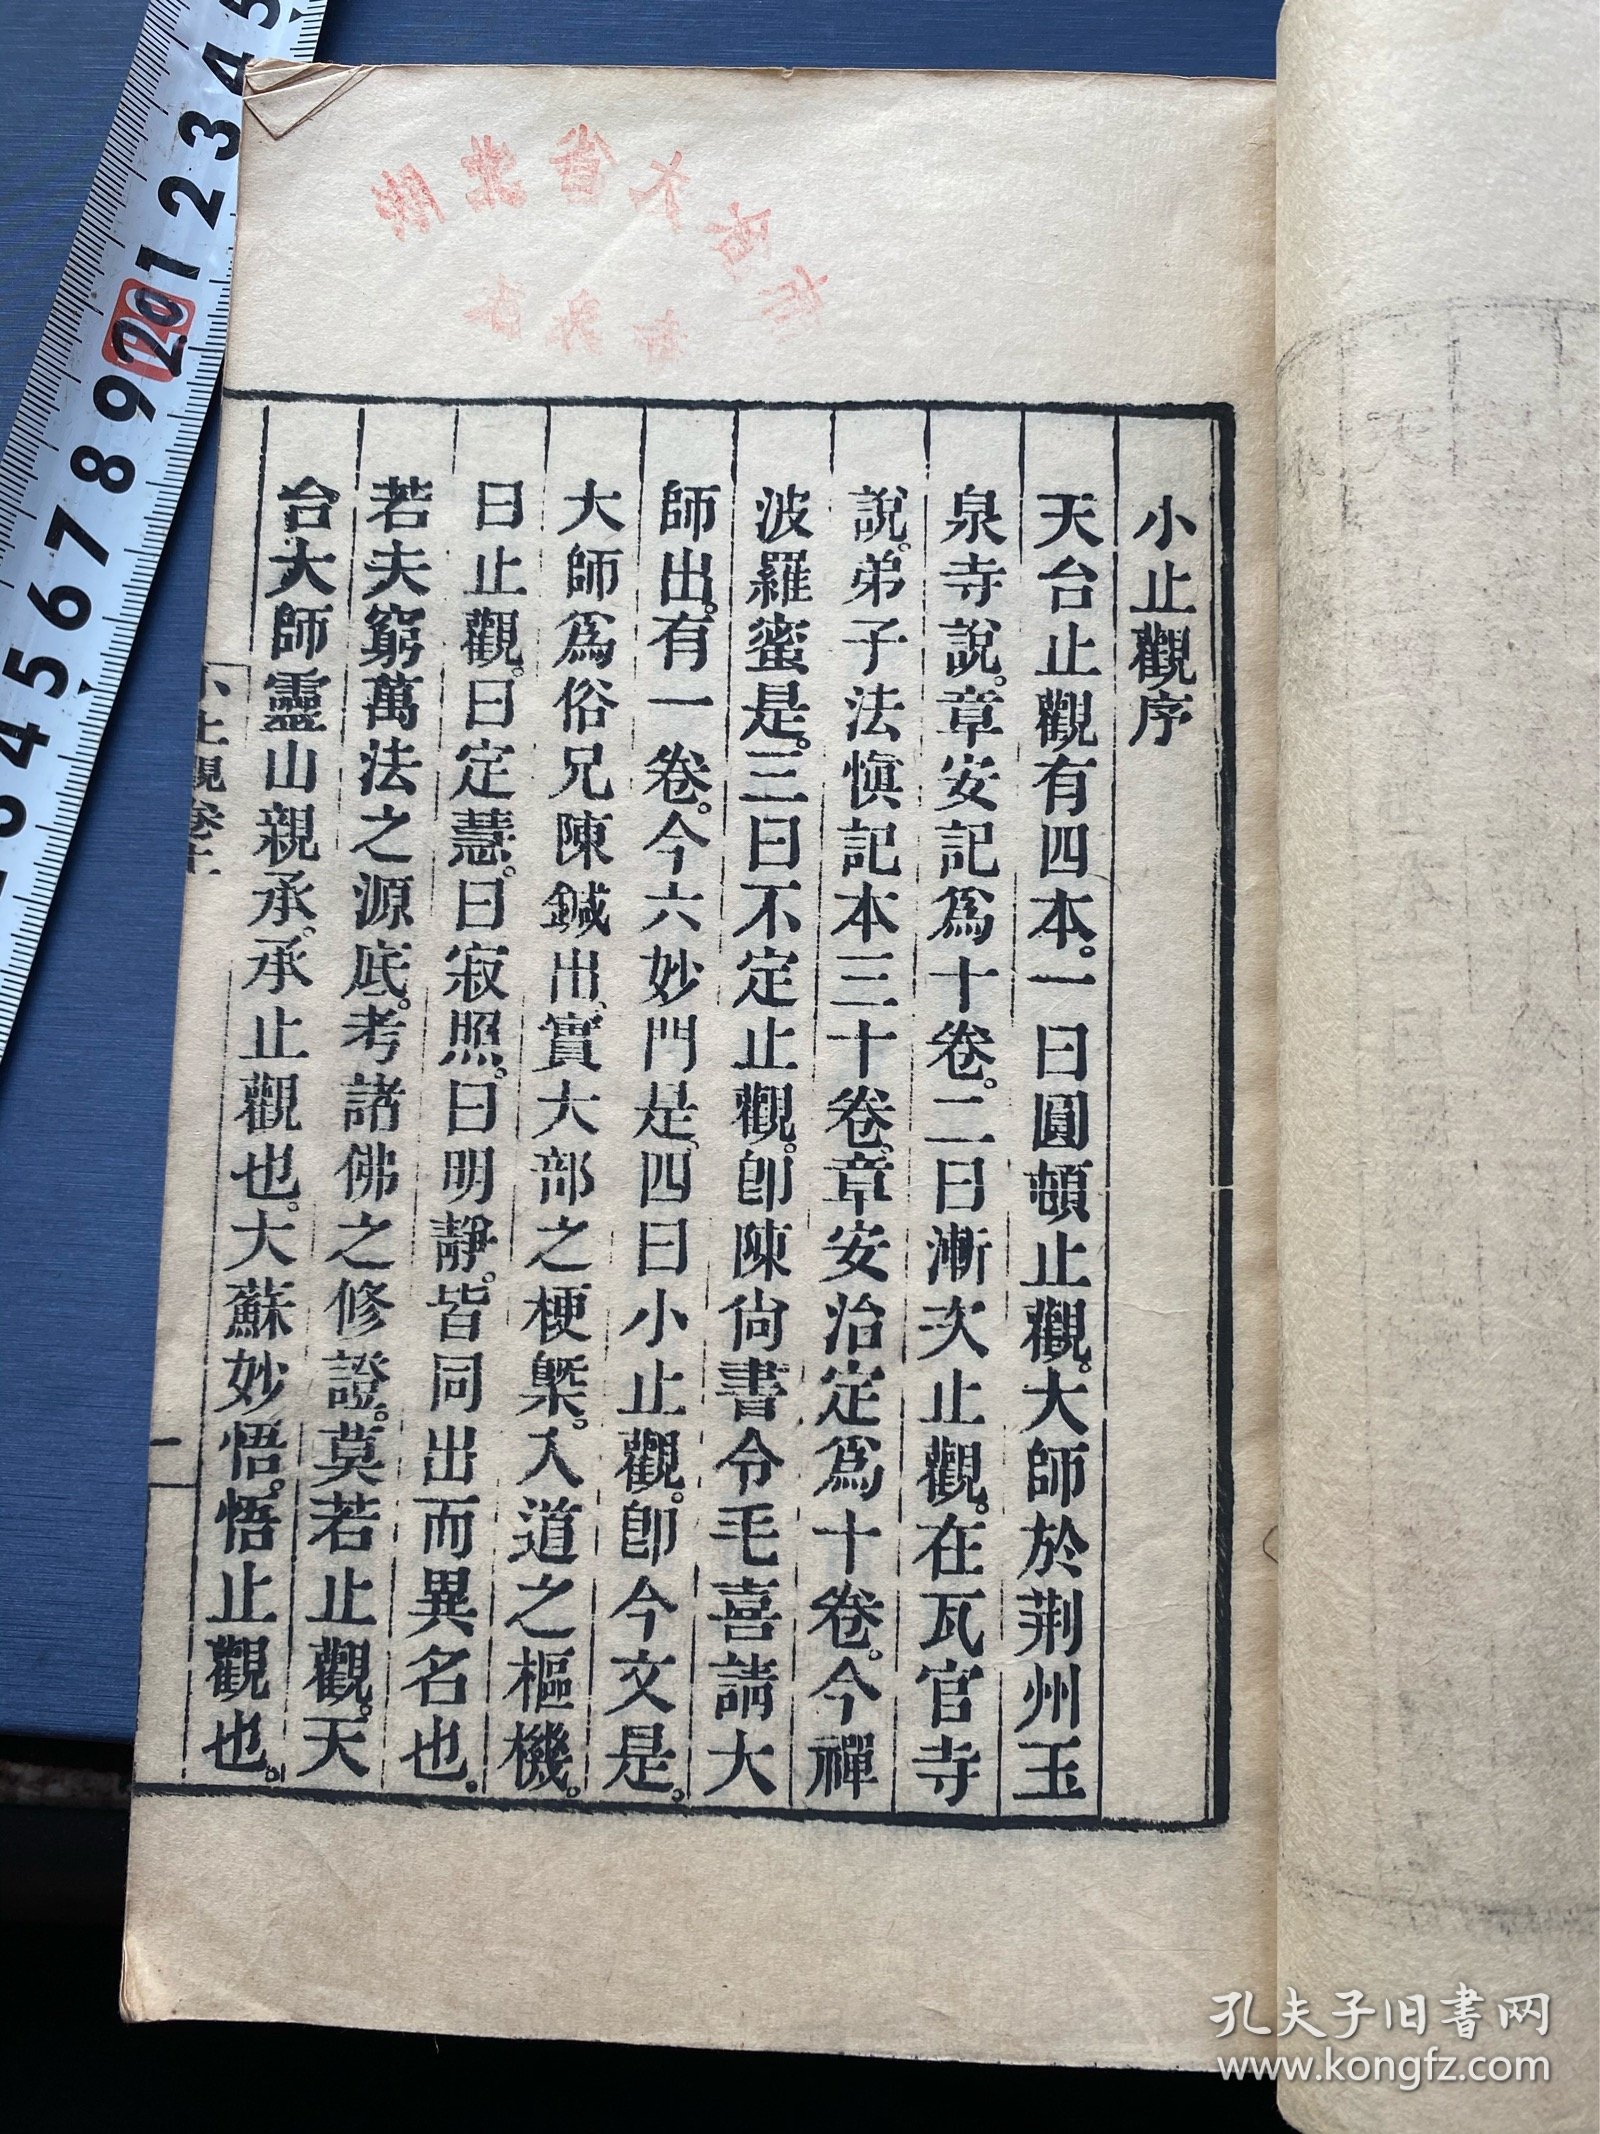 小止觀序
天台止觀有四本。一曰圓頓止觀。大師於荆州玉
泉寺說。章安記爲十卷。二曰漸次止觀。在瓦官寺
說。弟子法愼記本三十卷。章安治定爲十卷。今禪
波羅蜜是。三曰不定止觀。卽陳尙書令毛喜請大
師出。有一卷。今六妙門是。四曰小止觀。卽今文是。
大師爲俗兄陳鍼出、實大部之梗槩。入道之樞機。
曰止觀。曰定慧。曰寂照。曰明靜。皆同出而異名也。
若夫窮萬法之源底。考諸佛之修證。莫若止觀。天
台大師靈山親承。承止觀也。大蘇妙悟。悟止觀也。
小止觀卷上
二
孔夫子旧书网
www.kongfz.com
5
4
3
2
1
20
9
8
7
6
5
4